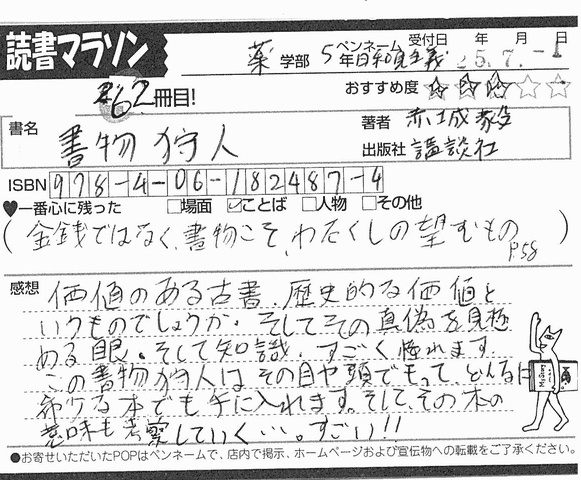 読書マラソン
薬 学部 5 年 ペンネーム 日和見主義 受付日 25年7月-1日
262冊目! おすすめ度 ☆☆☆☆☆
書名 書物狩人
著者 赤城毅
出版社 講談社
ISBN 978-4-06-182487-4
♥一番心に残った □場面 ☑ことば □人物 □その他
(金銭ではなく、書物こそ、わたくしの望むもの P.58)
感想 価値のある古書、歴史的な価値と
いうものでしょうか。そしてその真偽を見極
める眼。そして知識、すごく憧れます
この書物狩人はその目や頭でもって、どんなに
希少な本でも手に入れます。そして、その本の
意味も考察していく…。すごい!!
●お寄せいただいたPOPはペンネームで、店内で掲示、ホームページおよび宣伝物への転載をご了承ください。